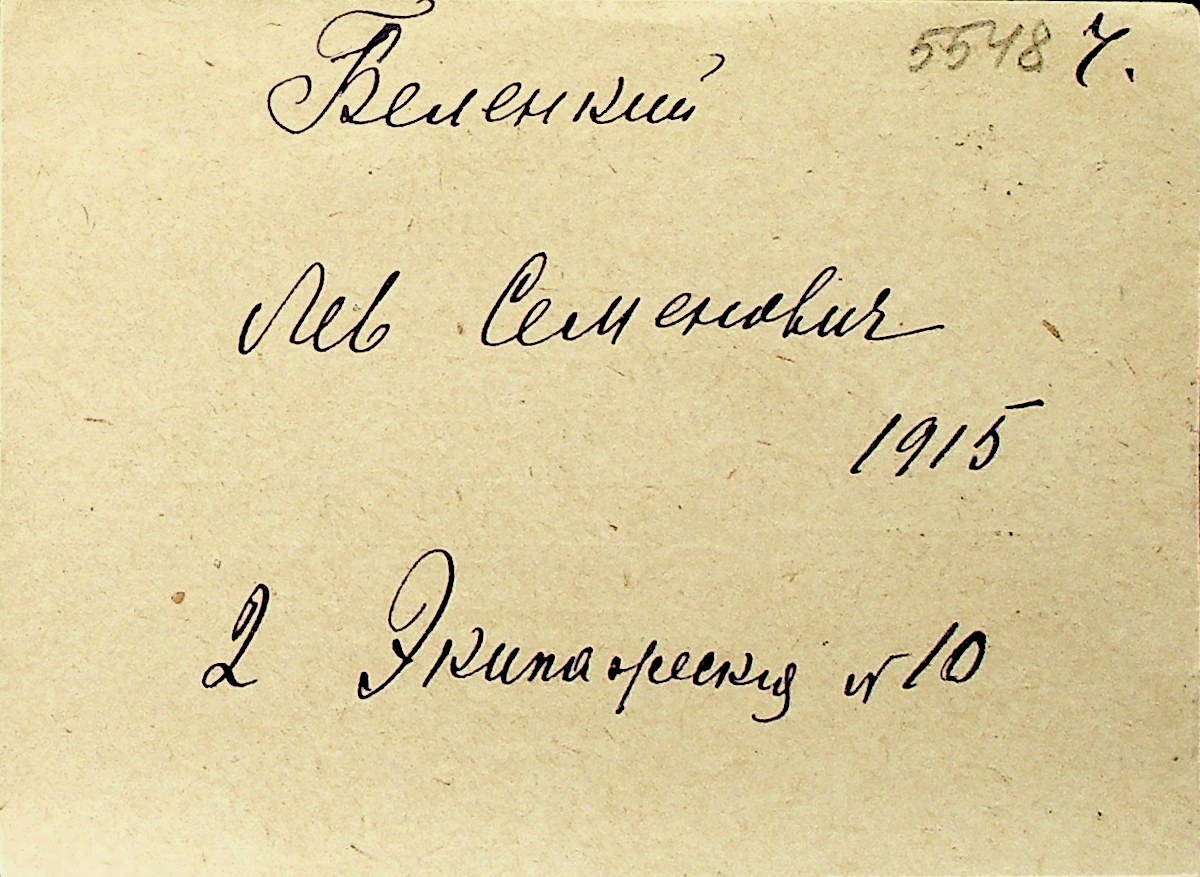 5548 ч.
Беленкий
Лев Семенович
1915
2 Экипажеская № 10